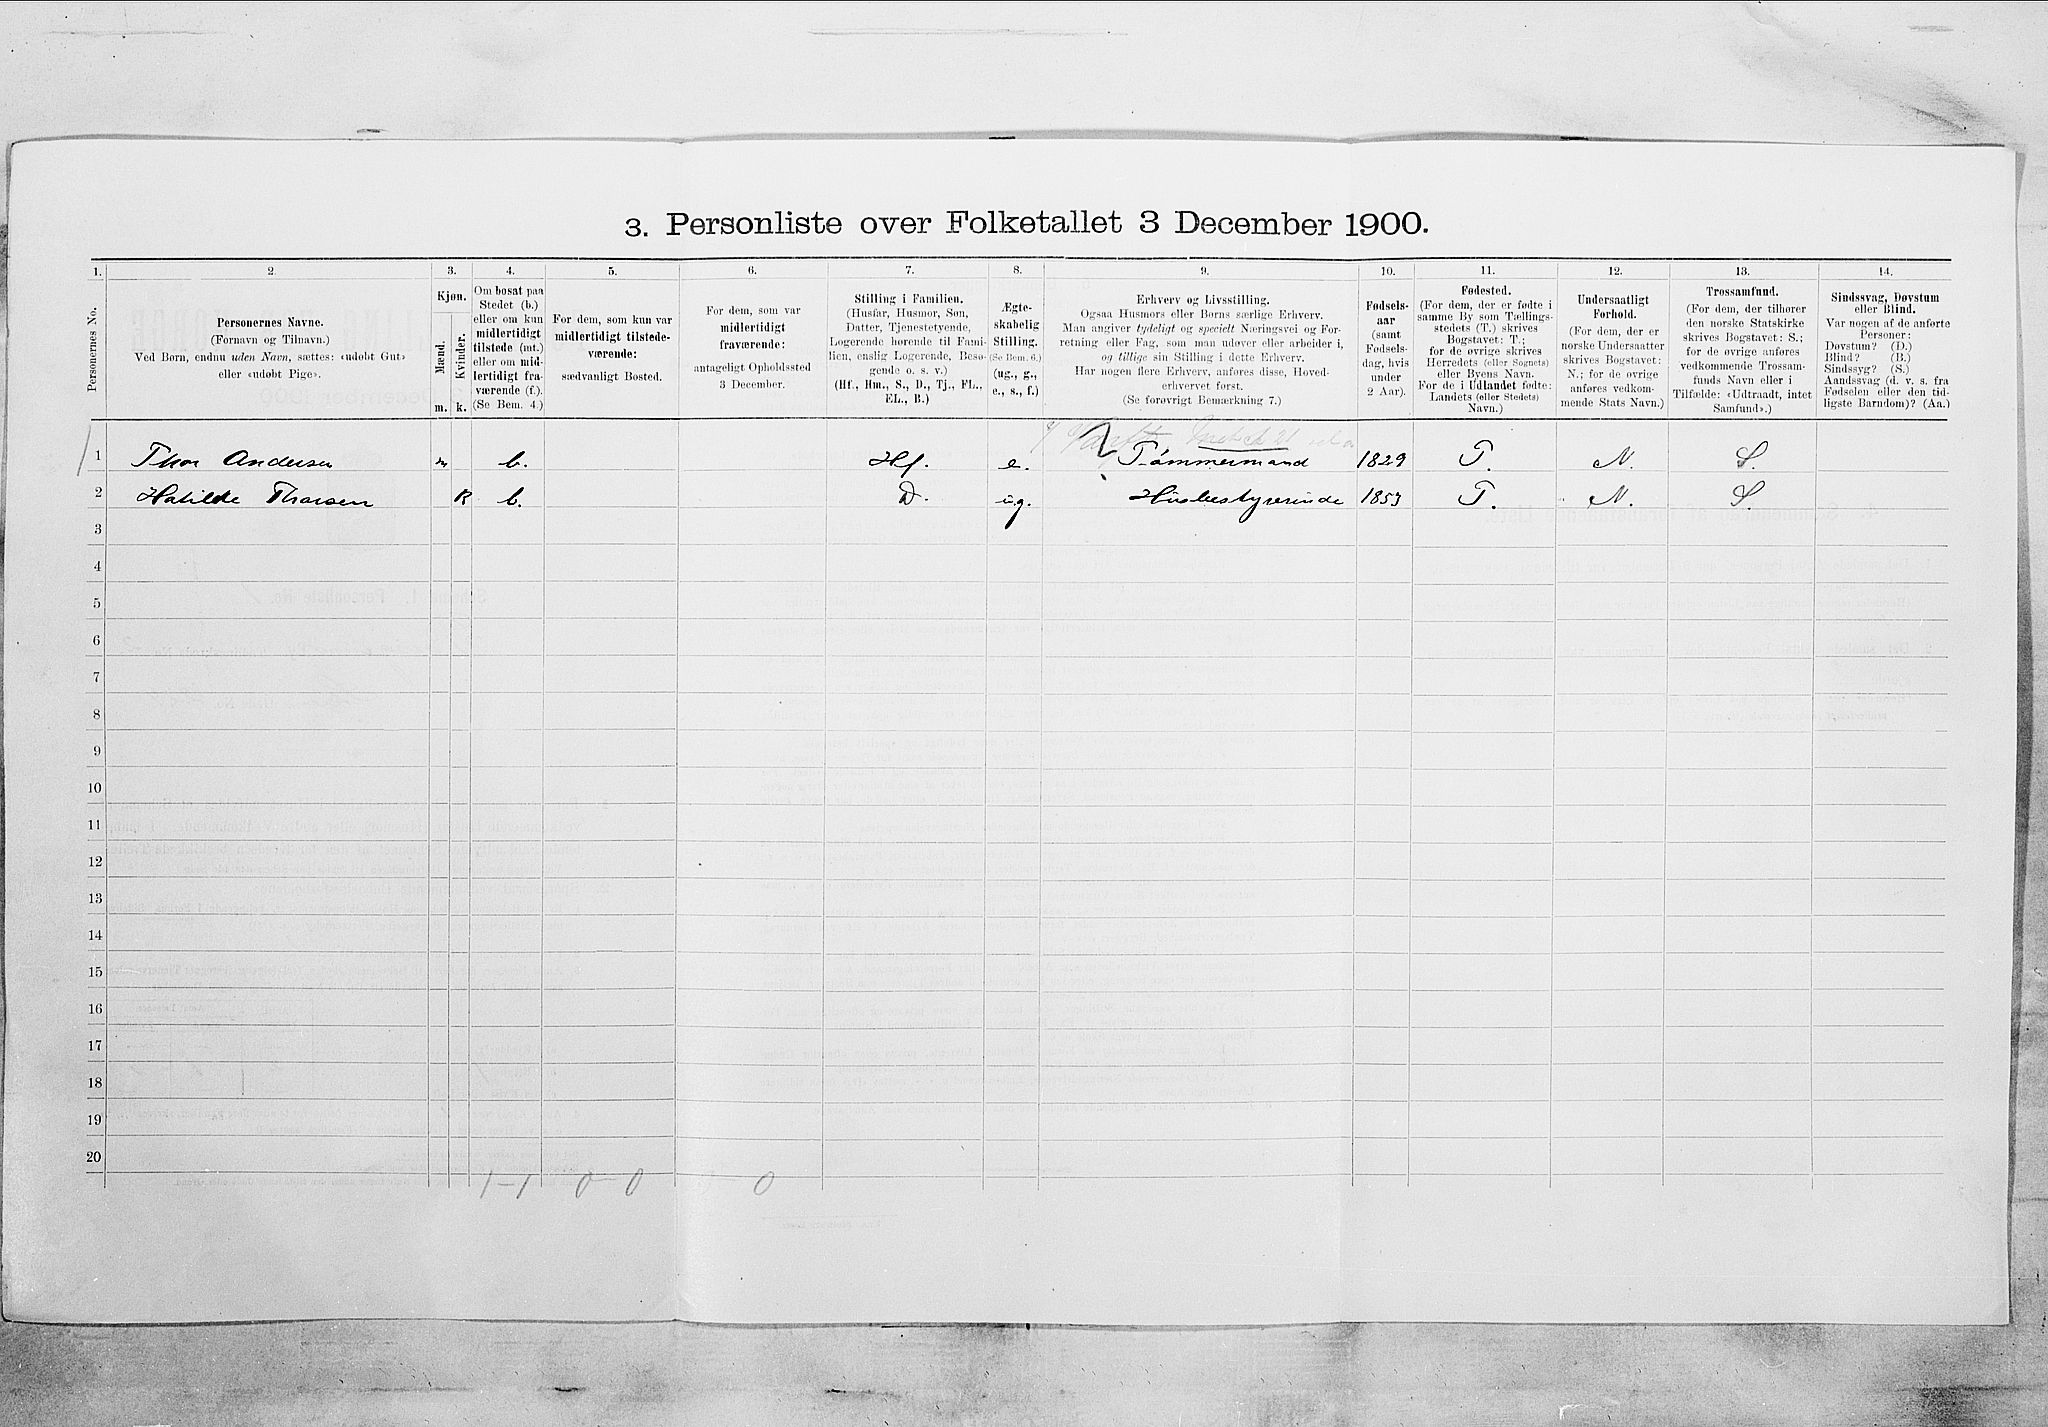 3. Personliste over Folketallet 3 December 1900.
1. 2. 3. 4. 5. 6. 7. 8. 9. 10. 11. 12. 13. 14.
Personernes No.
Personernes Navne.
(Fornavn og Tilnavn.)
Ved Børn, endnu uden Navn, sættes: «udøbt Gut»
eller «udøbt Pige».
Kjøn.
Mænd.
Kvinder.
m. k.
Om bosat paa
Stedet (b.)
eller om kun
midlertidigt
tilstede (mt.)
eller om mid-
lertidigt fra-
værende (f.).
(Se Bem. 4.)
For dem, som kun var
midlertidigt tilstede-
værende:
sædvanligt Bosted.
For dem, som var
midlertidigt
fraværende:
antageligt Opholdssted
3 December.
Stilling i Familien.
(Husfar, Husmor, Søn,
Datter, Tjenestetyende,
Logerende hørende til Fami-
lien, enslig Logerende, Besø-
gende o. s. v.)
(Hf., Hm., S., D., Tj., FL.,
EL., B.)
Ægte-
skabelig
Stilling.
(Se Bem. 6.)
(ug., g.,
e., s., f.)
Erhverv og Livsstilling.
Ogsaa Husmors eller Børns særlige Erhverv.
Man angiver tydeligt og specielt Næringsvei og For-
retning eller Fag, som man udøver eller arbeider i,
og tillige sin Stilling i dette Erhverv.
Har nogen flere Erhverv, anføres disse, Hoved-
erhvervet først.
(Se forøvrigt Bemærkning 7.)
Fødsels-
aar
(samt
Fødsels-
dag, hvis
under
2 Aar).
Fødested.
(For dem, der er fødte i
samme By som Tællings-
stedets (T.) skrives
Bogstavet: T.;
for de øvrige skrives
Herredets (eller Sognets)
eller Byens Navn.
For de i Udlandet fødte:
Landets (eller Stedets)
Navn.)
Undersaatligt
Forhold.
(For dem, der er
norske Undersaatter
skrives Bogstavet:
N.; for de øvrige
anføres vedkom-
mende Stats Navn.)
Trossamfund.
(For dem, der tilhører
den norske Statskirke
skrives Bogstavet: S.;
for de øvrige anføres
vedkommende Trossam-
funds Navn eller i
Tilfælde: «Udtraadt, intet
Samfund».)
Sindssvag, Døvstum
eller Blind.
Var nogen af de anførte
Personer:
Døvstum? (D.)
Blind? (B.)
Sindssyg? (S.)
Aandssvag (d. v. s. fra
Fødselen eller den tid-
ligste Barndom)? (Aa.)
1 Thor Andersen m b. Hf. e. ? Tømmermand 1829 T. N. S.
2 Hatilde Thorsen K b. D. ug. Husbestyrerinde 1853 T. N. S.
3
4
5
6
7
8
9
10
11
12
13
14
15
16
17
18
19
20
1-1 0-0 0